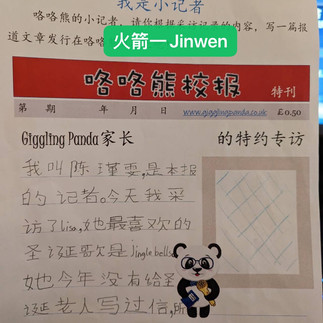 我是小记者
咯咯熊的小记者，请你根据采访记录的内容，写一篇报
道文章发行在咯咯
火箭一 Jinwen
咯咯熊校报
特刊
第 期 年 月 日 www.gigglingpanda.co.uk £0.50
Giggling Panda 家长 的特约专访
我叫陈瑾雯,是本报
的记者。今天我采
访了lisa,她最喜欢的
圣诞歌是jingle bells,
她今年没有给圣
诞老人写过信,所